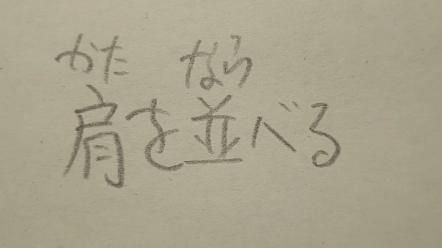 かた なら
肩を並べる